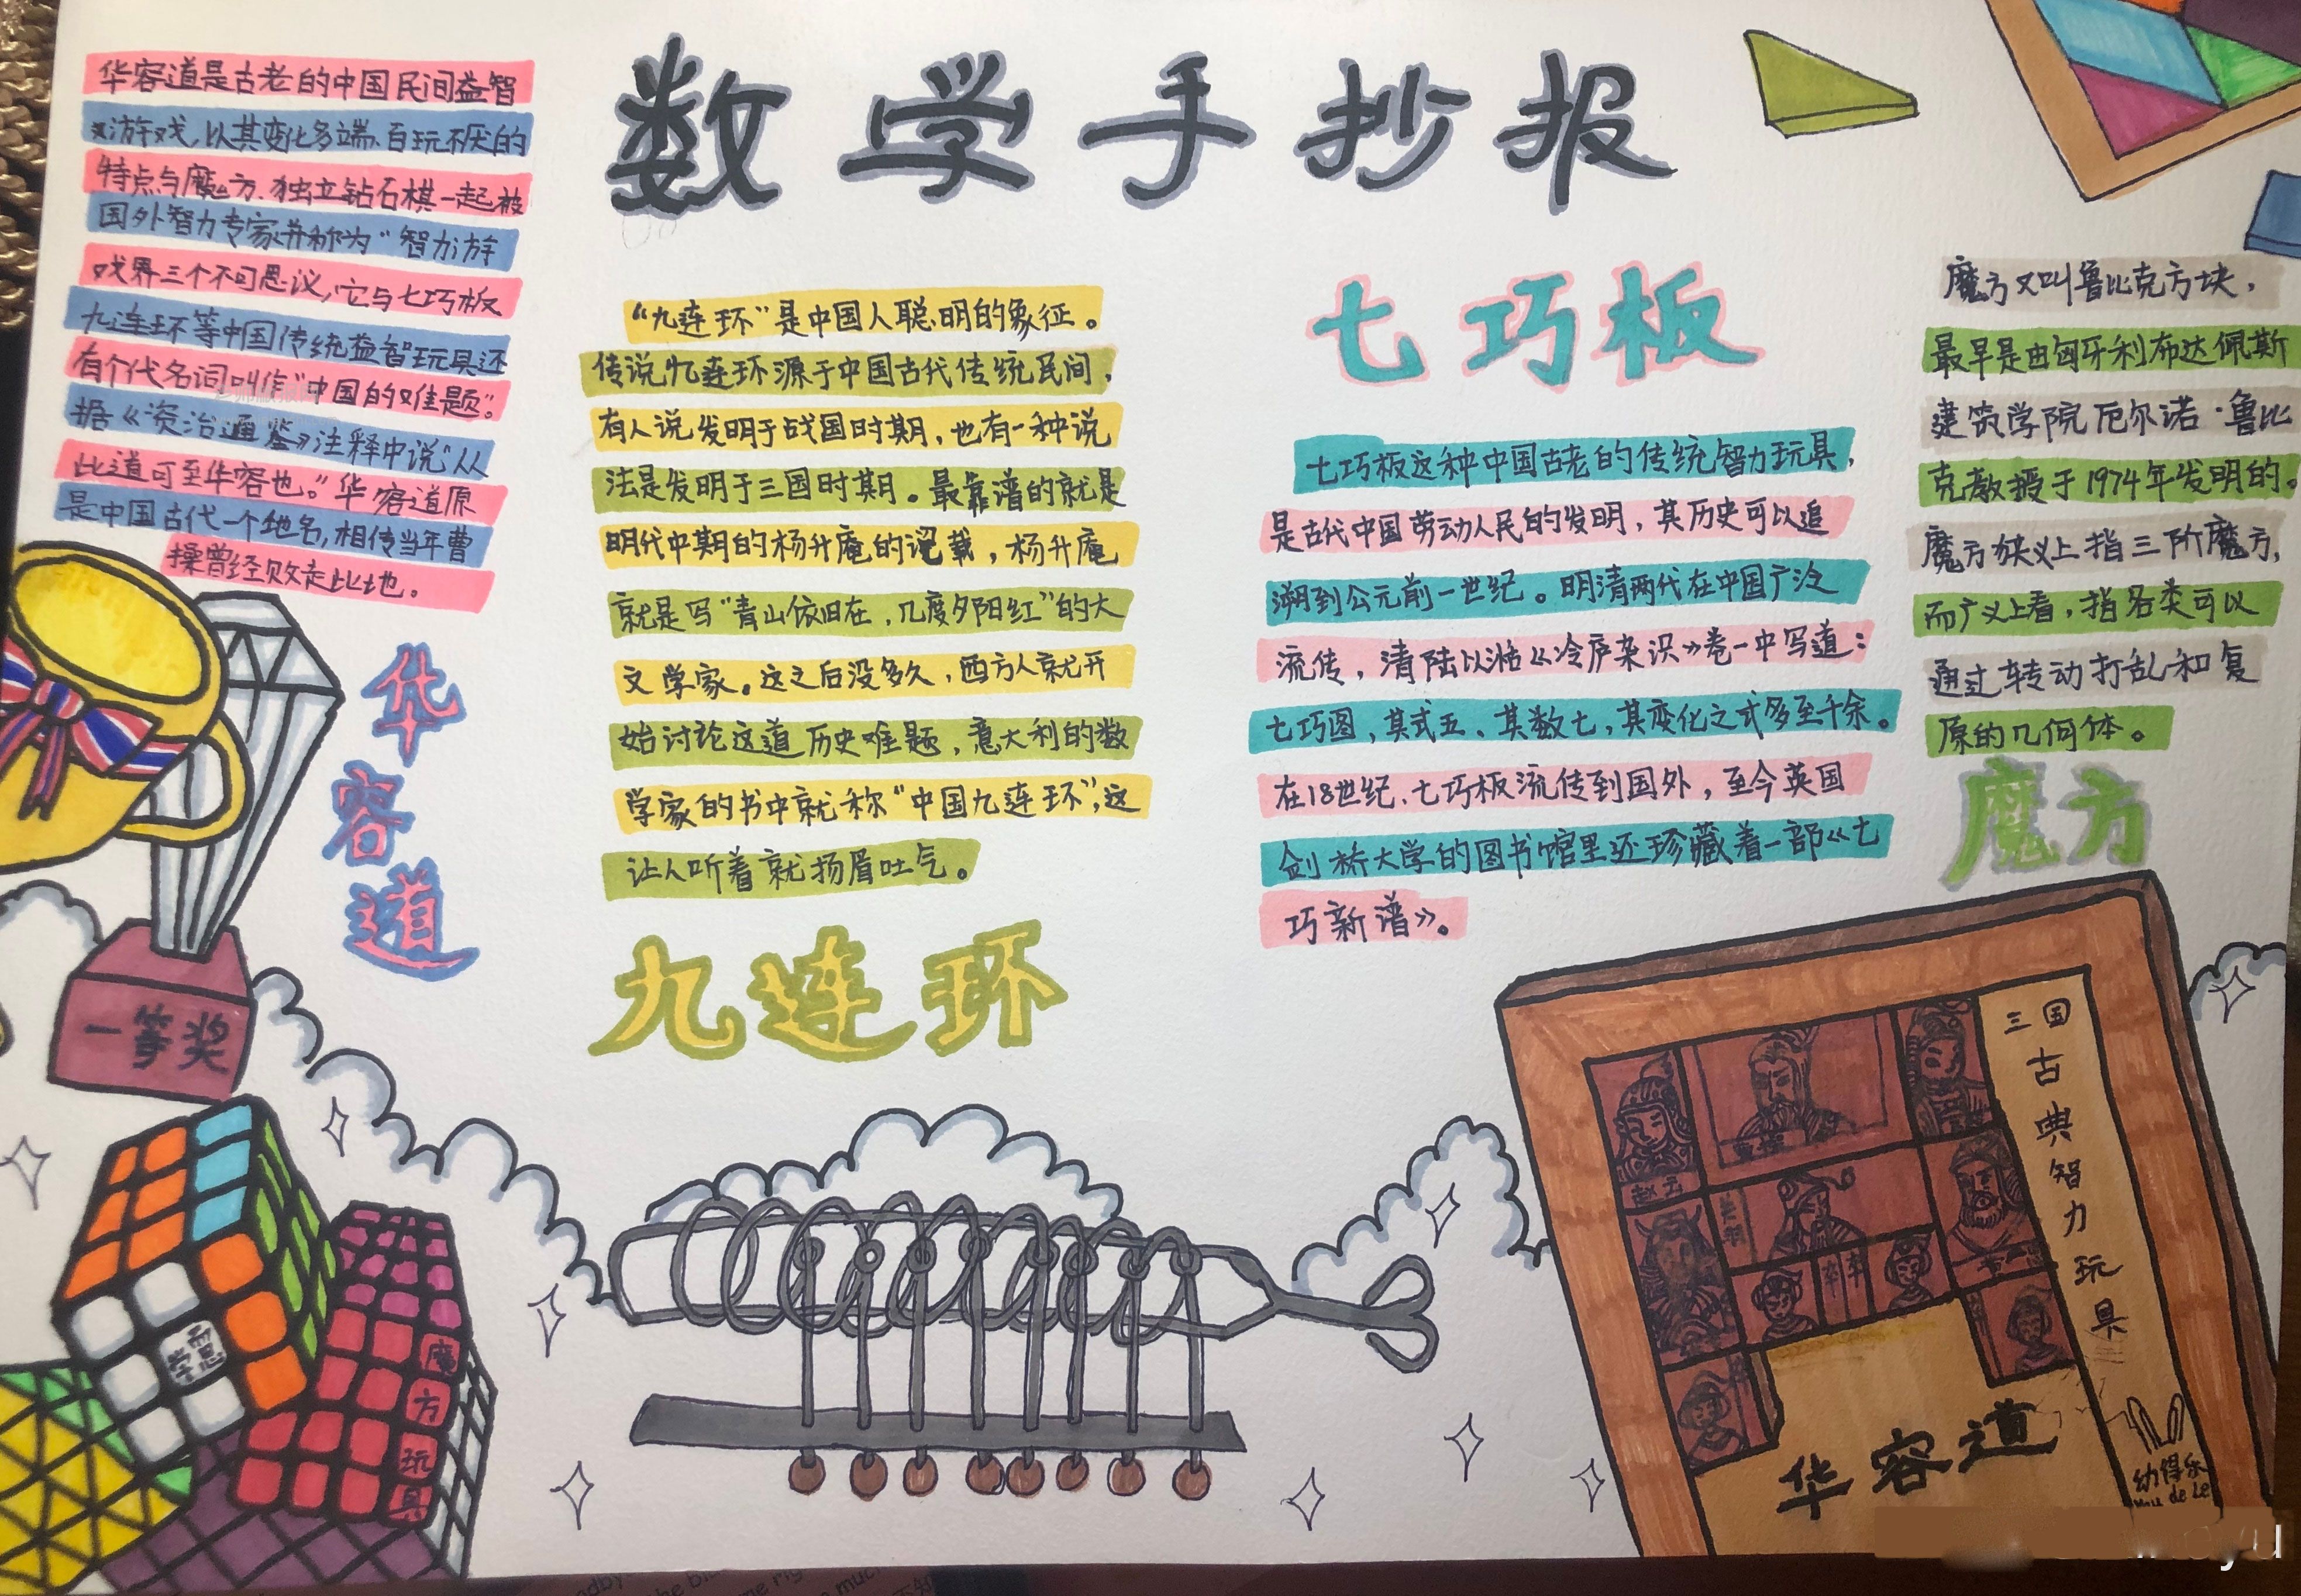 数学手抄报
华容道是古老的中国民间益智
游戏,以其变化多端、百玩不厌的
特点与魔方、独立钻石棋一起被
国外智力专家并称为“智力游
戏界三个不可思议,它与七巧板
九连环等中国传统益智玩具还
有个代名词叫作“中国的难题”。
据《资治通鉴》注释中说“从
此道可至华容也。”华容道原
是中国古代一个地名,相传当年曹
操曾经败走此地。
华容道
“九连环”是中国人聪明的象征。
传说九连环源于中国古代传统民间,
有人说发明于战国时期,也有一种说
法是发明于三国时期。最靠谱的就是
明代中期的杨升庵的记载,杨升庵
就是写“青山依旧在,几度夕阳红”的大
文学家。这之后没多久,西方人就开
始讨论这道历史难题,意大利的数
学家的书中就称“中国九连环”,这
让人听着就扬眉吐气。
九连环
七巧板
七巧板这种中国古老的传统智力玩具,
是古代中国劳动人民的发明,其历史可以追
溯到公元前一世纪。明清两代在中国广泛
流传,清陆以湉《冷庐杂识》卷一中写道:
七巧图,其式五、其数七,其变化之式多至千余。
在18世纪、七巧板流传到国外,至今英国
剑桥大学的图书馆里还珍藏着一部《七
巧新谱》。
魔方又叫鲁比克方块,
最早是由匈牙利布达佩斯
建筑学院厄尔诺·鲁比
克教授于1974年发明的。
魔方狭义上指三阶魔方,
而广义上看,指各类可以
通过转动打乱和复
原的几何体。
魔方
一等奖
学思
魔方玩具
三国古典智力玩具
赵云
卒卒
华容道
幼得乐